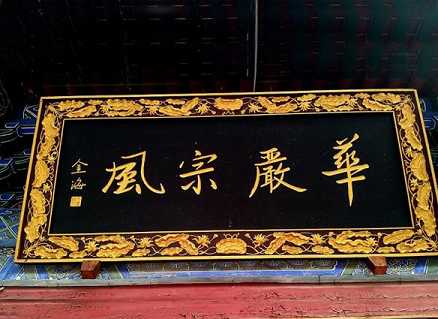 華嚴宗風
金海